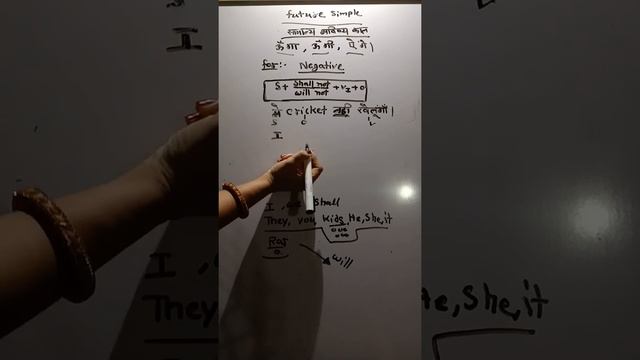 future simple
सामान्य भविष्य काल
ऊँगा, ऊँगी, एंगे।
for:- Negative
S + shall not / will not + v1 + o
मै cricket नही खेलूंगाँ।
S o v
I
I, we shall
They, you, kids, He, She, it
Raj
will